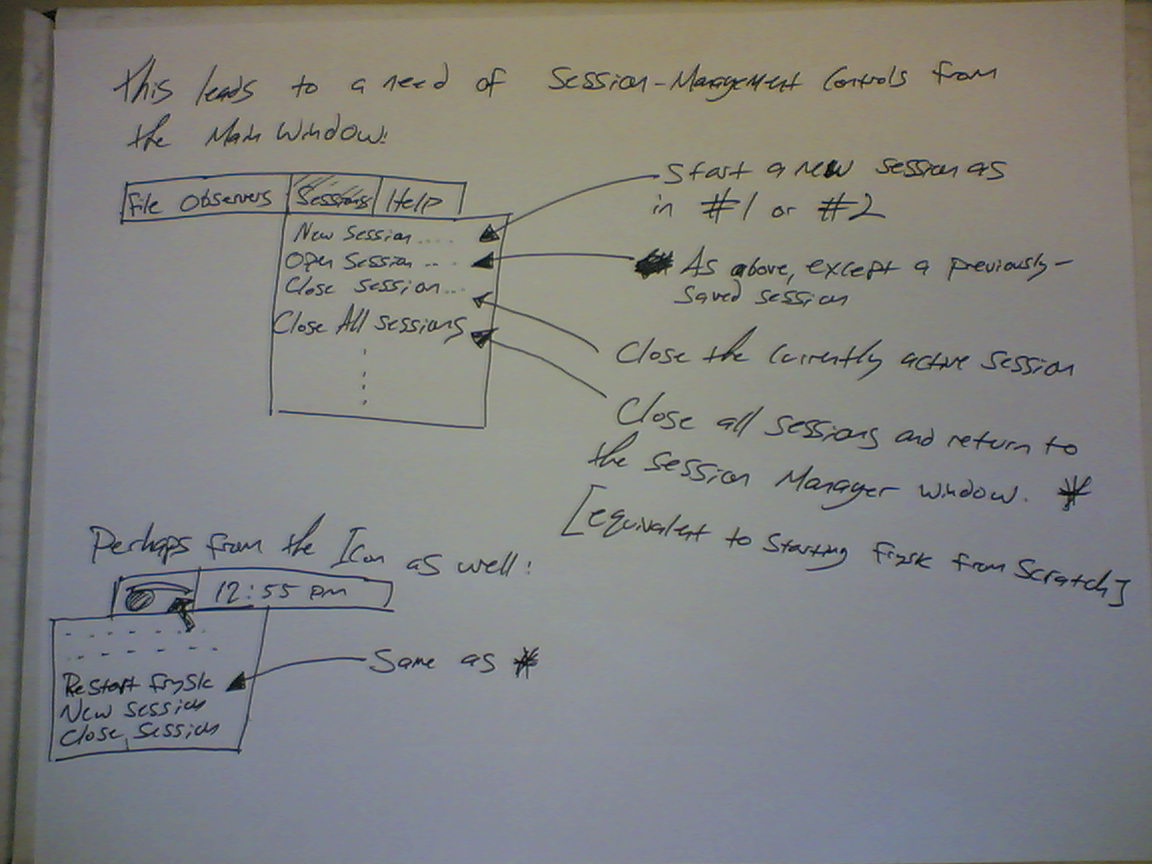 This leads to a need of Session-Management Controls from
the Main Window:
File Observers Sessions Help
New Session....
Open Session...
Close Session...
Close All Sessions
Start a new session as
in #1 or #2
As above, except a previously-
saved session
Close the currently active session
Close all sessions and return to
the Session Manager window. *
[equivalent to starting frysk from scratch]
Perhaps from the Icon as well:
12:55 pm
Restart frysk
New Session
Close Session
Same as *